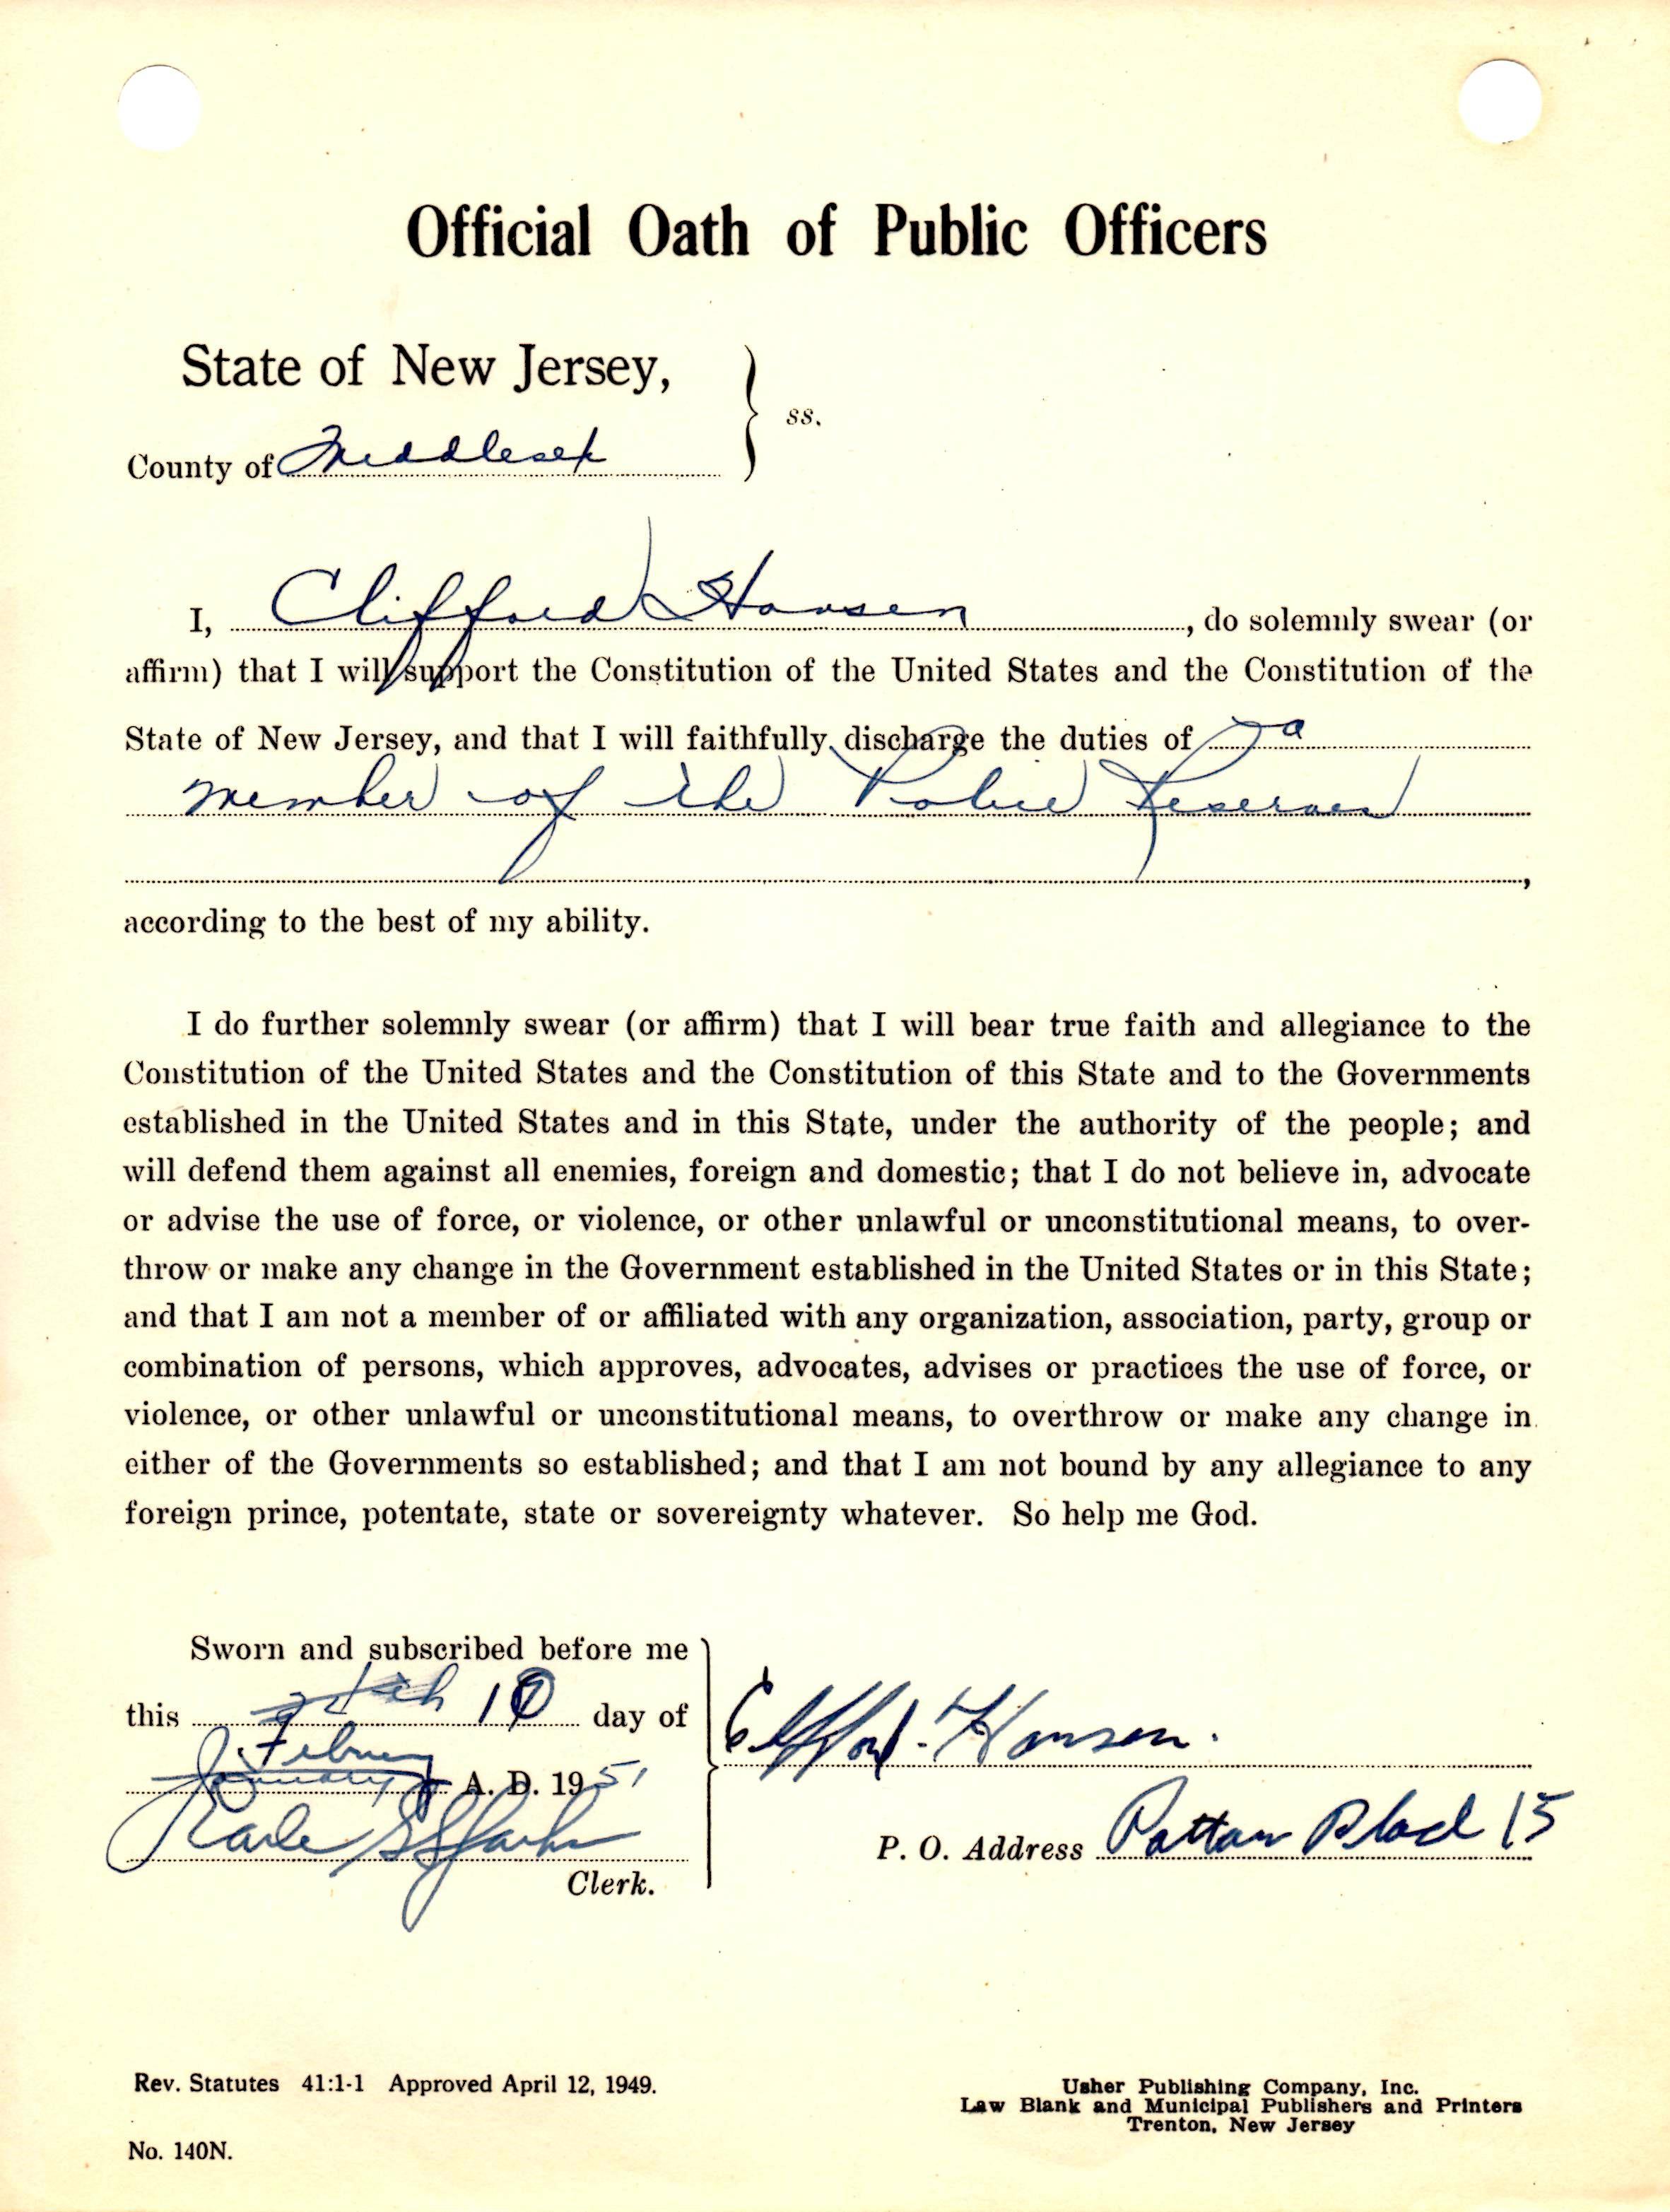 Official Oath of Public Officers
State of New Jersey,
ss.
County of Middlesex
I, Clifford Hansen, do solemnly swear (or
affirm) that I will support the Constitution of the United States and the Constitution of the
State of New Jersey, and that I will faithfully discharge the duties of a
member of the Police Reserves
,
according to the best of my ability.
I do further solemnly swear (or affirm) that I will bear true faith and allegiance to the
Constitution of the United States and the Constitution of this State and to the Governments
established in the United States and in this State, under the authority of the people; and
will defend them against all enemies, foreign and domestic; that I do not believe in, advocate
or advise the use of force, or violence, or other unlawful or unconstitutional means, to over-
throw or make any change in the Government established in the United States or in this State;
and that I am not a member of or affiliated with any organization, association, party, group or
combination of persons, which approves, advocates, advises or practices the use of force, or
violence, or other unlawful or unconstitutional means, to overthrow or make any change in
either of the Governments so established; and that I am not bound by any allegiance to any
foreign prince, potentate, state or sovereignty whatever. So help me God.
Sworn and subscribed before me
this day of
January A. D. 1951
Clerk.
Clifford Hansen.
P. O. Address 15
Rev. Statutes 41:1-1 Approved April 12, 1949.
No. 140N.
Usher Publishing Company, Inc.
Law Blank and Municipal Publishers and Printers
Trenton, New Jersey